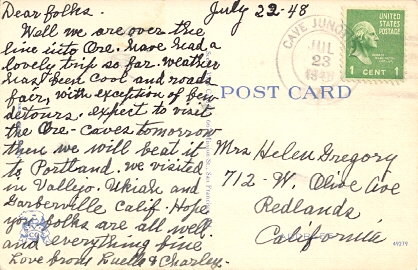 July 22-48
Dear folks.
Well we are over the
line into Ore. have had a
lovely trip so far. weather
has been cool and roads
fair, with exception of few
detours. expect to visit
the Ore-Caves tomorrow
then we will beat it
to Portland. we visited
in Vallejo. Ukiah and
Garberville Calif. Hope
you folks are all well
and everything fine
Love from Luella & Charley.
CAVE JUNC
JUL
23
1948
UNITED STATES
POSTAGE
1 CENT 1
POST CARD
Mrs Helen Gregory
712-W. Olive Ave
Redlands
California
49239